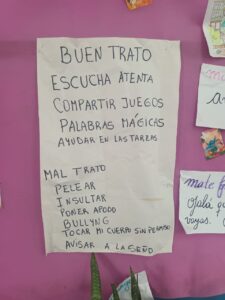 BUEN TRATO
ESCUCHA ATENTA
COMPARTIR JUEGOS
PALABRAS MÁGICAS
AYUDAR EN LAS TAREAS
MAL TRATO
PELEAR
INSULTAR
PONER APODO
BULLYNG
TOCAR MI CUERPO SIN PERMISO
AVISAR A LA SEÑO
male
Ojalá q
vayas.